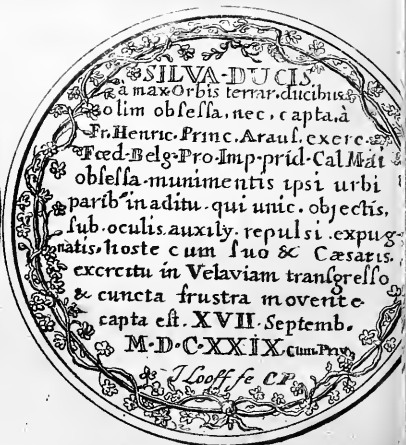 SILVA·DUCIS
a max·Orbis terrar·ducibus&
olim obſeſſa, nec, capta, à
Fr. Henric. Princ. Arauſ. exerc.
Fœd·Belg·Pro·Imp·prid·Cal Maii
obſeſſa·munimentis ipſi urbi
parib⁹ in aditu·qui unic·objectis,
ſub·oculis·auxily·repulſi·expug
natis·hoſte cum ſuo & Cæſaris.
exercitu in Velaviam tranſgreſſo
& cuncta fruſtra movente
capta eſt·XVII·Septemb.
M·D·C·XXIX·Cum·Priv
J Looff fe C P.